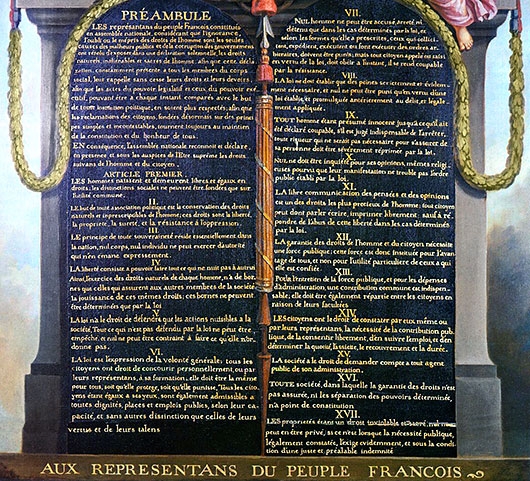 PRÉAMBULE
LES représantans du peuple François, constitués
en assemblée nationale, considérant que l'ignorance,
l'oubli ou le mépris des droits de l'homme sont les seules
causes des malheurs publics et de la corruption des gouvernemens
ont résolu d'exposer dans une déclaration solemnelle, les droits
naturels, inaliénables et sacrés de l'homme; afin que cette décla
ration, constamment présente à tous les membres du corps
social, leur rappelle sans cesse leurs droits et leurs devoirs;
afin que les actes du pouvoir législatif et ceux du pouvoir exé-
cutif, pouvant être à chaque instant comparés avec le but
de toute institution politique, en soient plus respectés; afin que
les réclamations des citoyens, fondées désormais sur des princi-
pes simples et incontestables, tournent toujours au maintien
de la constitution et du bonheur de tous.
EN conséquence, l'assemblée nationale reconnoît et déclare,
en presence et sous les auspices de l'Etre suprême les droits
suivans de l'homme et du citoyen.
ARTICLE PREMIER.
LES hommes naissent et demeurent libres et égaux en
droits; les distinctions sociales ne peuvent être fondées que sur
l'utilité commune.
II.
LE but de toute association politique est la conservation des droits
naturels et imprescriptibles de l'homme; ces droits sont la liberté,
la propriété, la sureté, et la résistance à l'oppression.
III.
LE principe de toute souveraineté réside essentiellement dans
la nation, nul corps, nul individu ne peut exercer d'autorité
qui n'en émane expressement.
IV.
LA liberté consiste à pouvoir faire tout ce qui ne nuit pas à autrui
Ainsi, l'exercice des droits naturels de chaque homme, n'a de bor-
nes que celles qui assurent aux autres membres de la société
la jouissance de ces mêmes droits; ces bornes ne peuvent
être déterminées que par la loi
V.
LA loi n'a le droit de défendre que les actions nuisibles à la
société. Tout ce qui n'est pas défendu par la loi ne peut être
empêché, et nul ne peut être contraint à faire ce qu'elle n'or-
donne pas.
VI.
LA loi est l'expression de la volonté générale; tous les
citoyens ont droit de concourir personnellement, ou par
leurs représentans, à sa formation; elle doit être la même
pour tous, soit qu'elle protege, soit qu'elle punisse. Tous les
citoyens étant égaux à ses yeux, sont également admissibles à
toutes dignités, places et emplois publics, selon leur ca-
pacité, et sans autres distinction que celles de leurs
vertus et de leurs talens
VII.
NUL homme ne peut être accusé, arreté, ni
détenu que dans les cas déterminés par la loi, et
selon les formes qu'elle a prescrites, ceux qui sollici-
tent, expédient, exécutent ou font exécuter des ordres ar-
bitraires, doivent être punis; mais tout citoyen appelé ou saisi
en vertu de la loi, doit obéir à l'instant, il se rend coupable
par la résistance.
VIII.
LA loi ne doit établir que des peines strictement et évidem-
ment nécessaire, et nul ne peut être puni qu'en vertu d'une
loi établie et promulguée antérieurement au délit, et légale-
ment appliquée.
IX.
TOUT homme étant présumé innocent jusqu'à ce qu'il ait
été déclaré coupable, s'il est jugé indispensable de l'arrêter,
toute rigueur qui ne serait pas nécessaire pour s'assurer de
sa personne doit être sévérement réprimée par la loi.
X.
NUL ne doit être inquiété pour ses opinions, mêmes religi-
euses pourvu que leur manifestation ne trouble pas l'ordre
public établi par la loi.
XI.
LA libre communication des pensées et des opinions
est un des droits les plus precieux de l'homme; tout citoyen
peut donc parler écrire, imprimer librement: sauf à ré-
pondre de l'abus de cette liberté dans les cas déterminés
par la loi.
XII.
LA garantie des droits de l'homme et du citoyen nécessite
une force publique; cette force est donc instituée pour l'avan-
tage de tous, et non pour l'utilité particulière de ceux à qui
elle est confiée.
XIII.
POUR l'entretien de la force publique, et pour les dépenses
d'administration, une contribution commune est indispen-
sable; elle doit être également répartie entre les citoyens en
raison de leurs facultées.
XIV.
LES citoyens ont le droit de constater par eux même ou
par leurs représentans, la nécessité de la contribution pub-
lique, de la consentir librement, d'en suivre l'emploi, et d'en
déterminer la quotité, l'assiette, le recouvrement et la durée.
XV.
LA société a le droit de demander compte à tout agent
public de son administration.
XVI.
TOUTE société, dans laquelle la garantie des droits n'est
pas assurée, ni les séparation des pouvoirs déterminée,
n'a point de constitution
XVII.
LES propriétés étant un droit inviolable et sacré, nul ne
peut en être privé, si ce n'est lorsque la nécessité publique,
légalement constatée, l'exige evidemment, et sous la condi-
tion d'une juste et préalable indemnité
AUX REPRESENTANS DU PEUPLE FRANCOIS